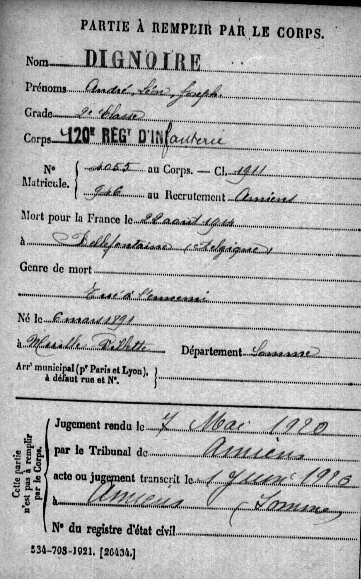 PARTIE À REMPLIR PAR LE CORPS.
Nom DIGNOIRE
Prénoms André, Léon, Joseph
Grade 2e Classe
Corps 120E REGT D'Infanterie
N° Matricule. 4055 au Corps. — Cl. 1911
946 au Recrutement Amiens
Mort pour la France le 22 août 1914
à Bellefontaine (Belgique)
Genre de mort
Tué à l'ennemi
Né le 6 mars 1891
à Département Somme
Arrt municipal (pr Paris et Lyon), à défaut rue et N°.
Cette partie n'est pas à remplir par le Corps.
Jugement rendu le 7 Mai 1920
par le Tribunal de Amiens
acte ou jugement transcrit le 1 Juin 1920
à Amiens (Somme)
N° du registre d'état civil
534-708-1921. [26434.]